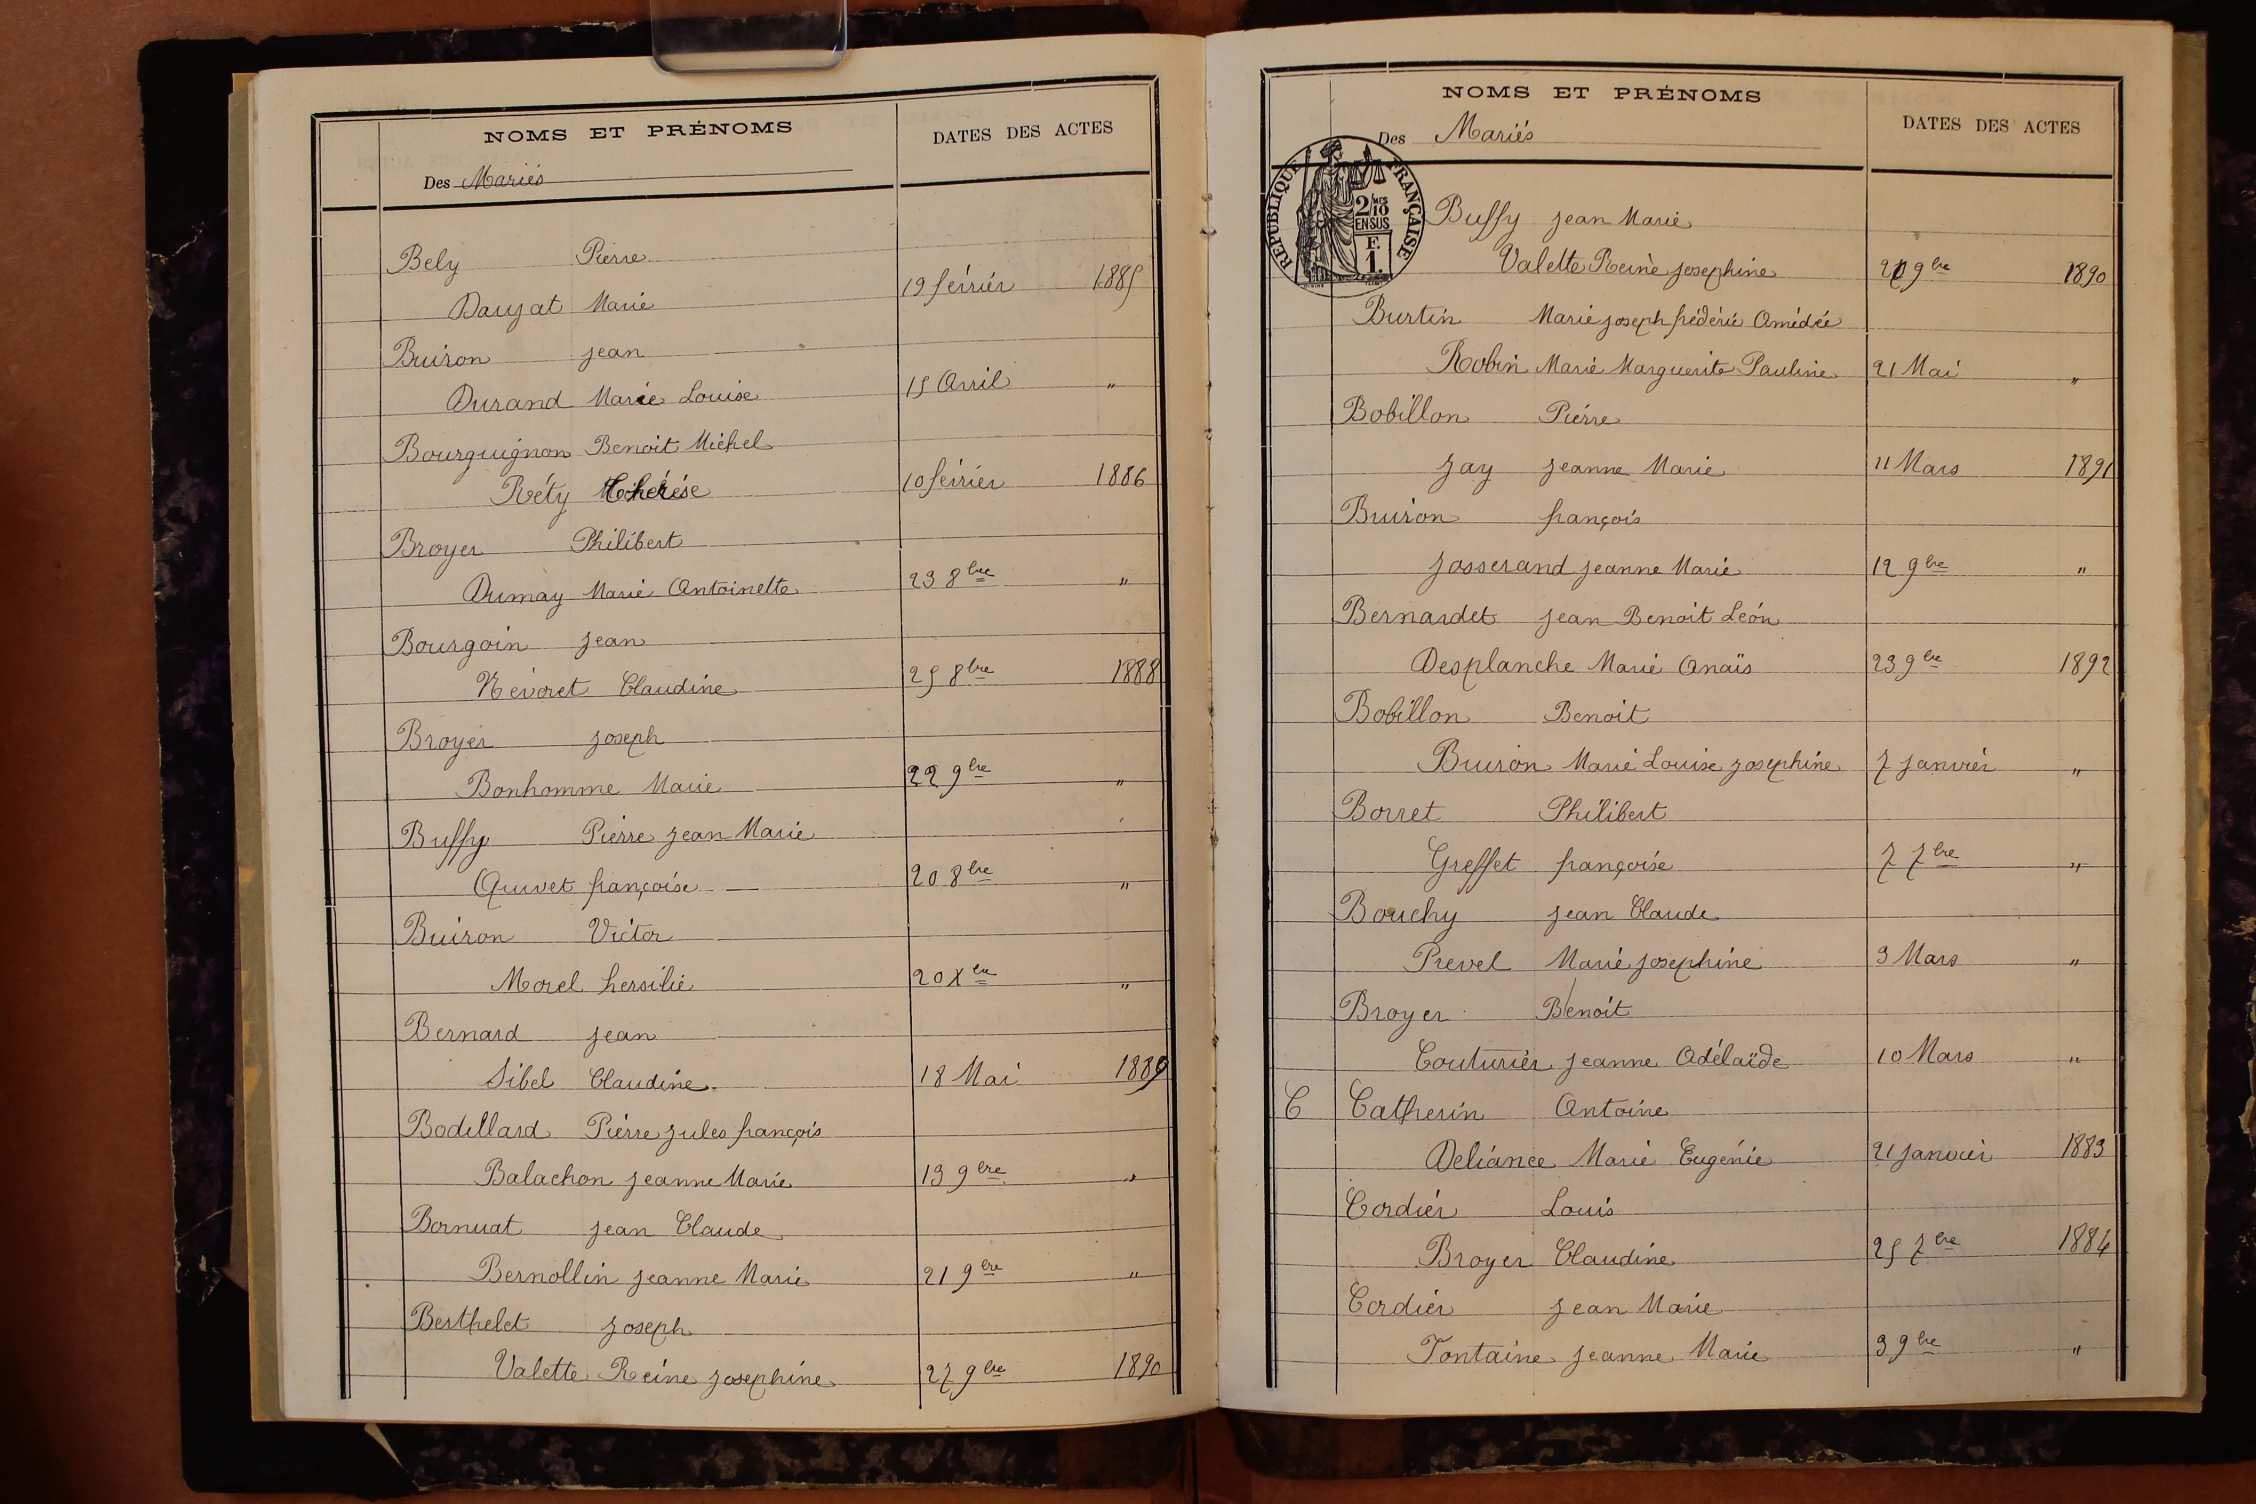 NOMS ET PRÉNOMS
DATES DES ACTES
Des Mariés
Bely Pierre
Dauzat Marie 19 février 1885
Buiron jean
Durand Marie Louise 15 Avril "
Bourguignon Benoit Michel
Réty Thérèse 10 février 1886
Broyer Philibert
Dumay Marie Antoinette 23 8bre "
Bourgoin jean
Névoret Claudine 25 8bre 1888
Broyer joseph
Bonhomme Marie 22 9bre "
Buffy Pierre jean Marie
Quivet françoise 20 8bre "
Buiron Victor
Morel hersilie 20 Xbre "
Bernard jean
Sibel Claudine 18 Mai 1889
Bodillard Pierre jules françois
Balachon jeanne Marie 13 9bre "
Bornuat jean Claude
Bernollin jeanne Marie 21 9bre "
Berthelet joseph
Valette Reine josephine 27 9bre 1890
NOMS ET PRÉNOMS
DATES DES ACTES
Des Mariés
REPUBLIQUE FRANÇAISE
2/10 MES
EN SUS
F.
1.
Buffy jean Marie
Valette Reine josephine 9bre 1890
Burtin Marie joseph frédéric Amédée
Robin Marie Marguerite Pauline 21 Mai "
Bobillon Pierre
Jay jeanne Marie 11 Mars 1891
Buiron françois
Josserand jeanne Marie 12 9bre "
Bernardet jean Benoit Léon
Desplanche Marie Anaïs 23 9bre 1892
Bobillon Benoit
Buiron Marie Louise josephine 7 janvier "
Borret Philibert
Greffet françoise 7 7bre "
Bouchy jean Claude
Prevel Marie josephine 3 Mars "
Broyer Benoit
Couturier jeanne Adélaïde 10 Mars "
C Catherin Antoine
Deliance Marie Eugénie 21 janvier 1883
Cordier Louis
Broyer Claudine 25 7bre 1884
Cordier jean Marie
Fontaine jeanne Marie 3 9bre "